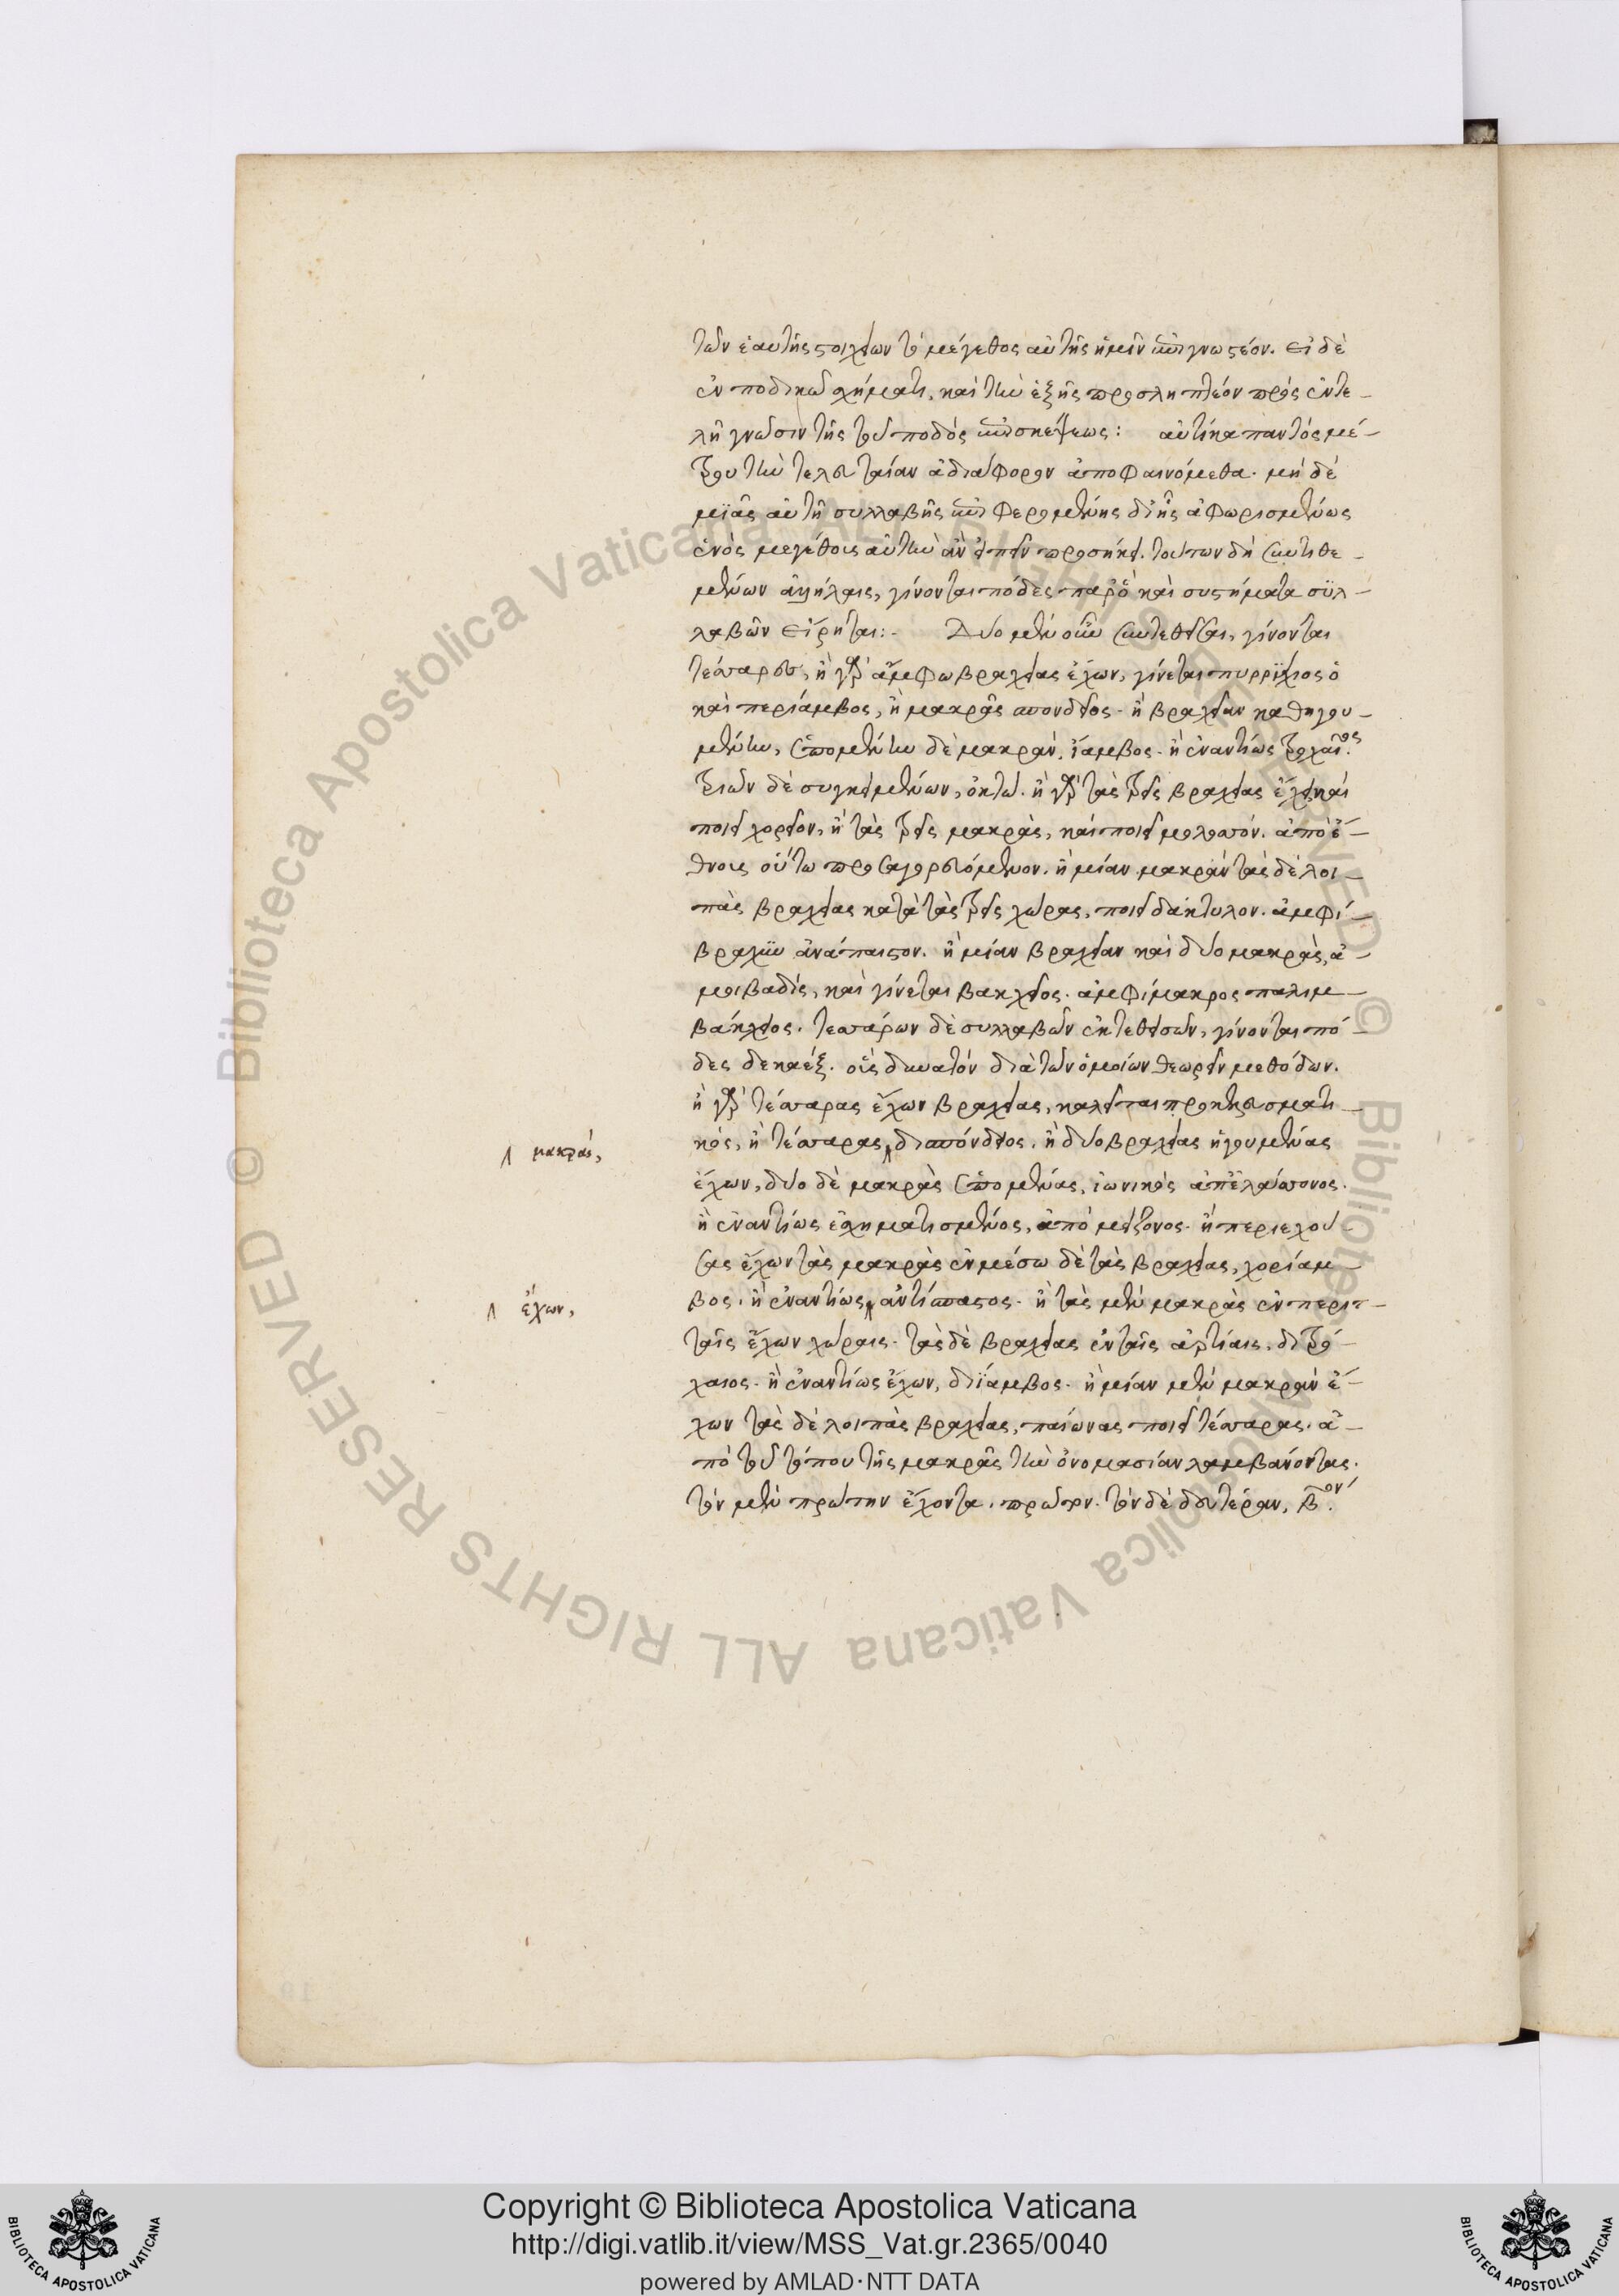 τῶν ἑαυτῆς στοιχείων τὸ μέγεθος αὐτῆς ἡμῖν ἐπιγνωστέον. εἰ δὲ
ἐν ποδικῷ σχήματι, καὶ τὴν ἑξῆς προσληπτέον πρὸς ἐντε-
λῆ γνῶσιν τῆς τοῦ ποδὸς ἐπισκέψεως: αὐτίκα παντὸς μέ-
τρου τὴν τελευταίαν ἀδιάφορον ἀποφαινόμεθα. μὴ δὲ
μϊᾶς αὐτῇ συλλαβῆς ἐπιφερομένης δι' ἧς ἀφωρισμένως
ἑνὸς μεγέθους αὐτὴν ἂν εἰπεῖν προσήκει. τούτων δὴ συντιθε-
μένων ἀλλήλαις, γίνονται πόδες παρὸ καὶ συστήματα συλ-
λαβῶν εἴρηται:- Δύο μὲν οὖν συντεθεῖσαι, γίνονται
τέσσαρες, ἢ γὰρ ἄμφω βραχείας ἔχων, γίνεται πυρρίχιος ὁ
καὶ περίαμβος, ἢ μακρᾶς σπονδεῖος. ἢ βραχεῖαν καθηγου-
μένην, ἑπομένην δὲ μακράν, ἴαμβος. ἢ ἐναντίως τροχαῖος.
τριῶν δὲ συγκειμένων, ὀκτώ. ἢ γὰρ τὰς τρεῖς βραχείας ἔχει καὶ
ποιεῖ χορεῖον, ἢ τὰς τρεῖς μακρὰς, καὶ ποιεῖ μολοσσόν. ἀπὸ ἔ-
θνους οὕτω προσαγορευόμενον. ἢ μίαν μακρὰν τὰς δὲ λοι-
πὰς βραχείας κατὰ τὰς τρεῖς χώρας, ποιεῖ δάκτυλον. ἀμφί-
βραχυν ἀνάπαιστον. ἢ μίαν βραχεῖαν καὶ δύο μακρὰς, ἀ-
μοιβαδὶς, καὶ γίνεται βακχεῖος. ἀμφίμακρος παλιμ-
βάκχειος. τεσσάρων δὲ συλλαβῶν ἐκτεθεισῶν, γίνονται πό-
δες δεκαέξ. οἷς δυνατὸν διὰ τῶν ὁμοίων θεωρεῖν μεθόδων.
ἢ γὰρ τέσσαρας ἔχων βραχείας, καλεῖται προκελευσματι-
κός, ἢ τέσσαρας, δισπόνδειος. ἢ δύο βραχείας ἡγουμένας
⋀ μακράς,
ἔχων, δύο δὲ μακρὰς ἑπομένας, ἰωνικὸς ἀπ' ἐλάσσονος.
ἢ ἐναντίως ἐσχηματισμένος, ἀπὸ μείζονος. ἢ περιεχού-
σας ἔχων τὰς μακρὰς ἐν μέσω δὲ τὰς βραχείας, χορίαμ-
βος. ἢ ἐναντίως, ἀντίσπαστος. ἢ τὰς μὲν μακρὰς ἐν περιτ-
⋀ ἔχων,
ταῖς ἔχων χώραις. τὰς δὲ βραχείας ἐν ταῖς ἀρτίαις, διτρό-
χαιος. ἢ ἐναντίως ἔχων, διΐαμβος. ἢ μίαν μὲν μακρὰν ἔ-
χων τὰς δὲ λοιπὰς βραχείας, παίωνας ποιεῖ τέσσαρας. ἀ-
πὸ τοῦ τόπου τῆς μακρᾶς τὴν ὀνομασίαν λαμβάνοντας.
τὸν μὲν πρώτην ἔχοντα, πρῶτον. τὸν δὲ δευτέραν, βον.
Copyright © Biblioteca Apostolica Vaticana
http://digi.vatlib.it/view/MSS_Vat.gr.2365/0040
powered by AMLAD·NTT DATA